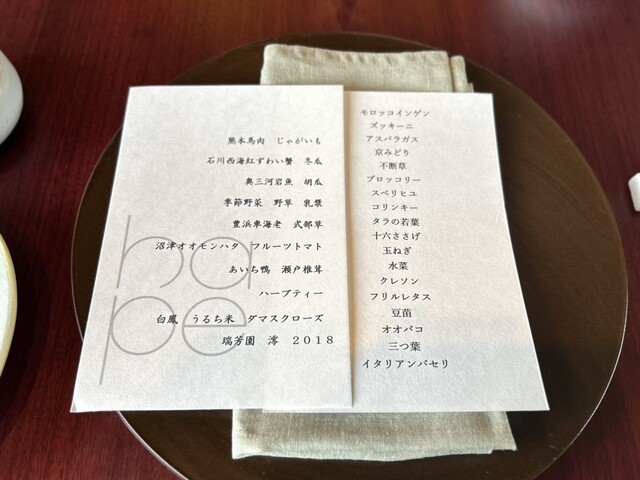 熊本馬肉　じゃがいも
石川西海紅ずわい蟹　冬瓜
奥三河岩魚　胡瓜
季節野菜　野草　乳漿
豊浜車海老　式部草
沼津オオモンハタ　フルーツトマト
あいち鴨　瀬戸椎茸
ハーブティー
白鳳　うるち米　ダマスクローズ
瑞芳園　澪　2018
hape
モロッコインゲン
ズッキーニ
アスパラガス
京みどり
不断草
ブロッコリー
スベリヒユ
コリンキー
タラの若葉
十六ささげ
玉ねぎ
水菜
クレソン
フリルレタス
豆苗
オオバコ
三つ葉
イタリアンパセリ